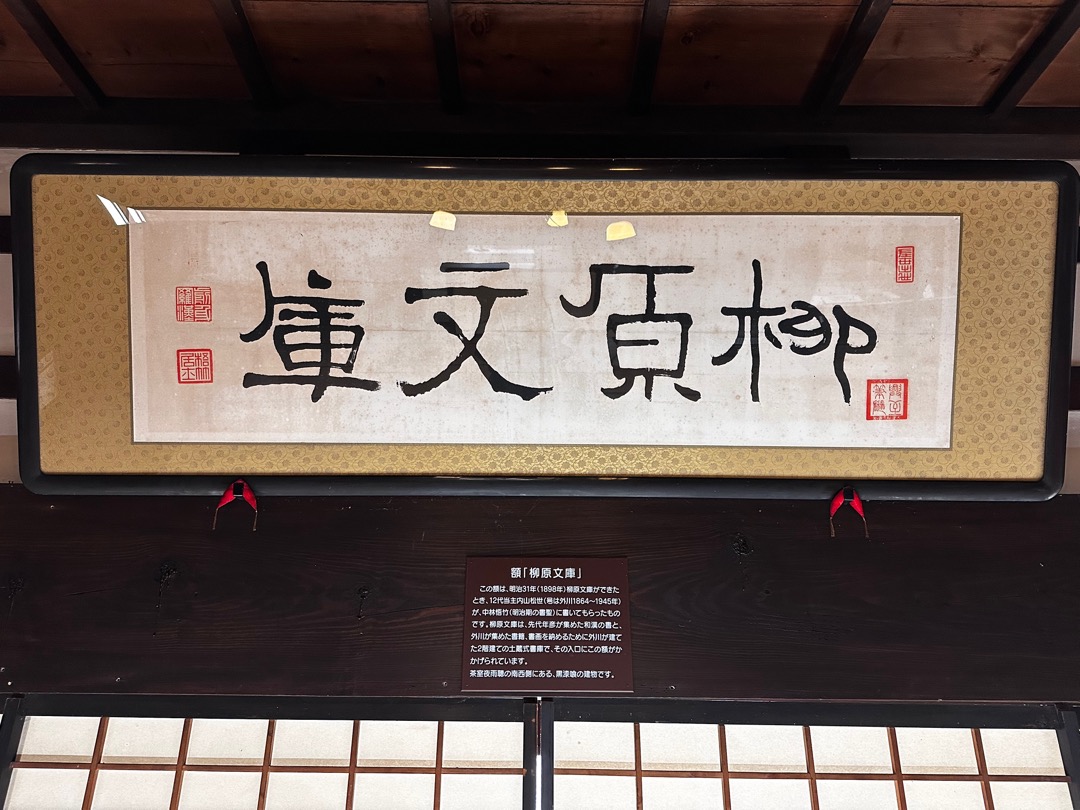 柳原文庫
額「柳原文庫」
この額は、明治31年(1898年)柳原文庫ができた
とき、12代当主内山松世(号は外川1864〜1945年)
が、中林梧竹(明治期の書聖)に書いてもらったもの
です。柳原文庫は、先代年彦が集めた和漢の書と、
外川が集めた書籍、書画を納めるために外川が建て
た2階建ての土蔵式書庫で、その入口にこの額がか
かげられています。
茶室夜雨聴の南西側にある、黒漆喰の建物です。